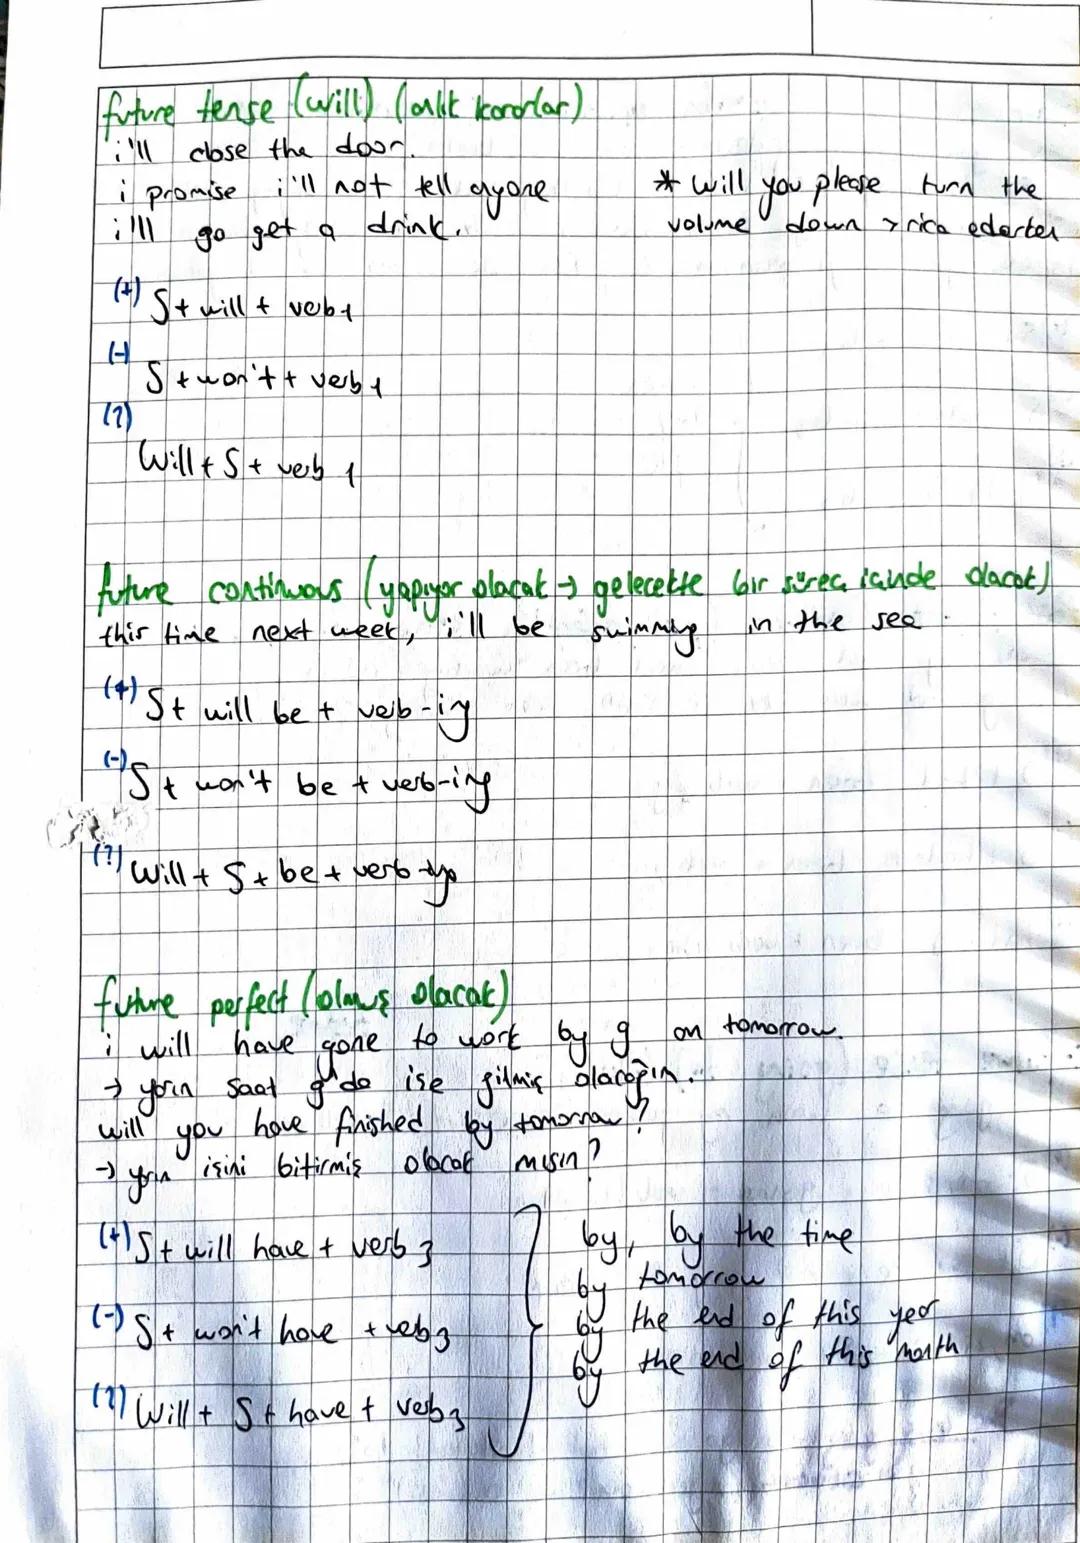 future tense (will) (anlık kararlar)
i'll close the door.
i promise i'll not tell ayone
i'll go get a drink.
* Will you please turn the
volume down > rica ederken
(+) S + will + verb1
(-)
S + won't + verb1
(?)
Will + S + verb 1
future continuous (yapıyor olacak → gelecekte bir süreç içinde olacak)
this time next week, i'll be swimming in the sea.
(+) S + will be + verb-ing
(-) S + won't be + verb-ing
(?) Will + S + be + verb
future perfect (olmuş olacak)
i will have gone to work by 9 on tomorrow.
→ yarın saat 9'da ise gitmiş olacağım.
will you have finished by tomorrow?
→ yarın işini bitirmiş olacak mısın?
(+) S + will have + verb3
(-) S + won't have + verb3
(?) Will + S + have + verb3
by, by the time
by tomorrow
by the end of this year
by the end of this month